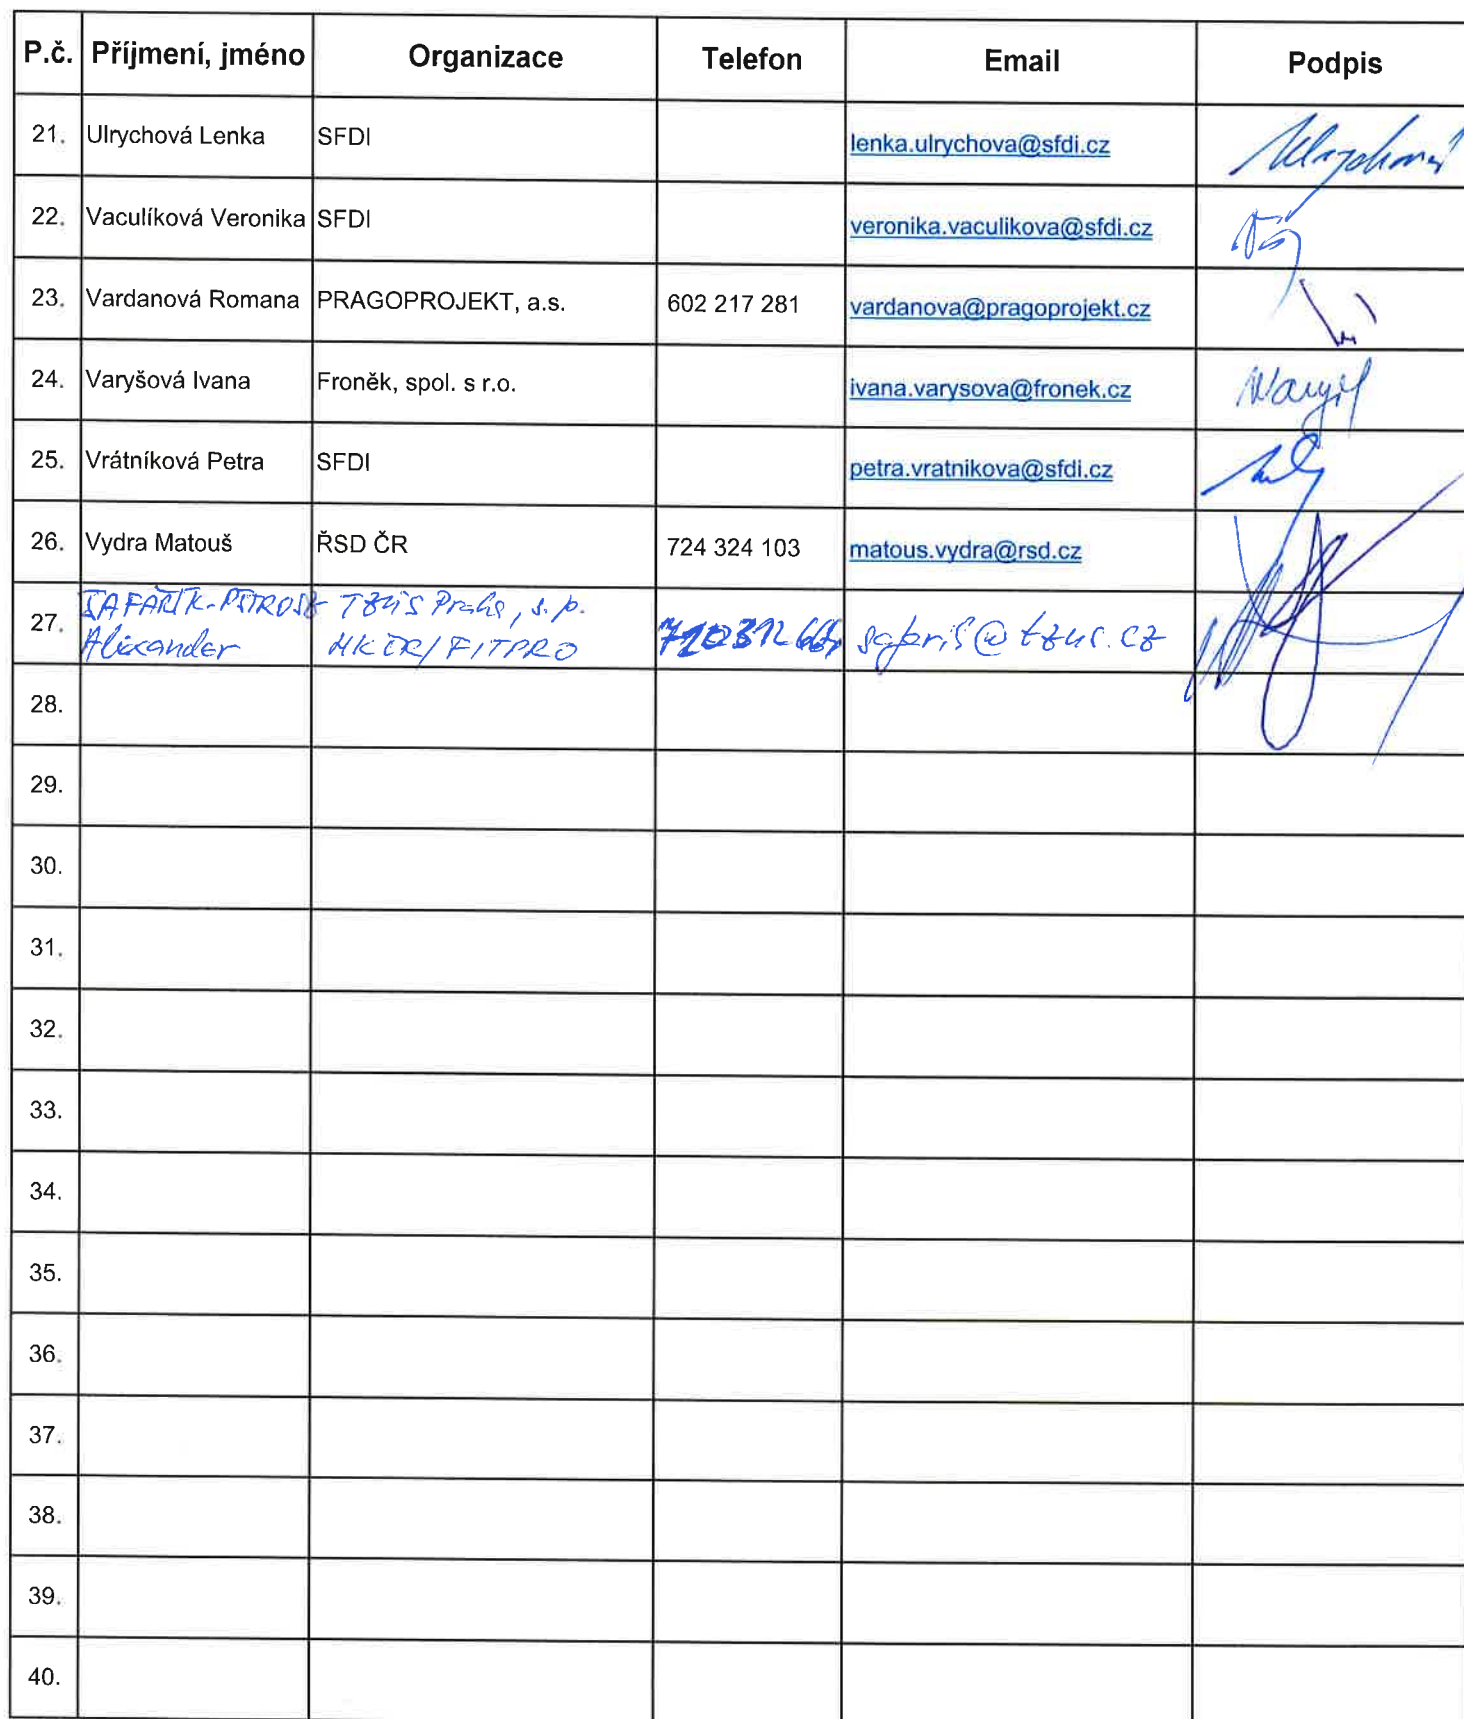 P.č. Příjmení, jméno Organizace Telefon Email Podpis
21. Ulrychová Lenka SFDI lenka.ulrychova@sfdi.cz
22. Vaculíková Veronika SFDI veronika.vaculikova@sfdi.cz
23. Vardanová Romana PRAGOPROJEKT, a.s. 602 217 281 vardanova@pragoprojekt.cz
24. Varyšová Ivana Froněk, spol. s r.o. ivana.varysova@fronek.cz
25. Vrátníková Petra SFDI petra.vratnikova@sfdi.cz
26. Vydra Matouš ŘSD ČR 724 324 103 matous.vydra@rsd.cz
27. Praha, s. p.
Alexander HK ČR/FITPRO
28.
29.
30.
31.
32.
33.
34.
35.
36.
37.
38.
39.
40.